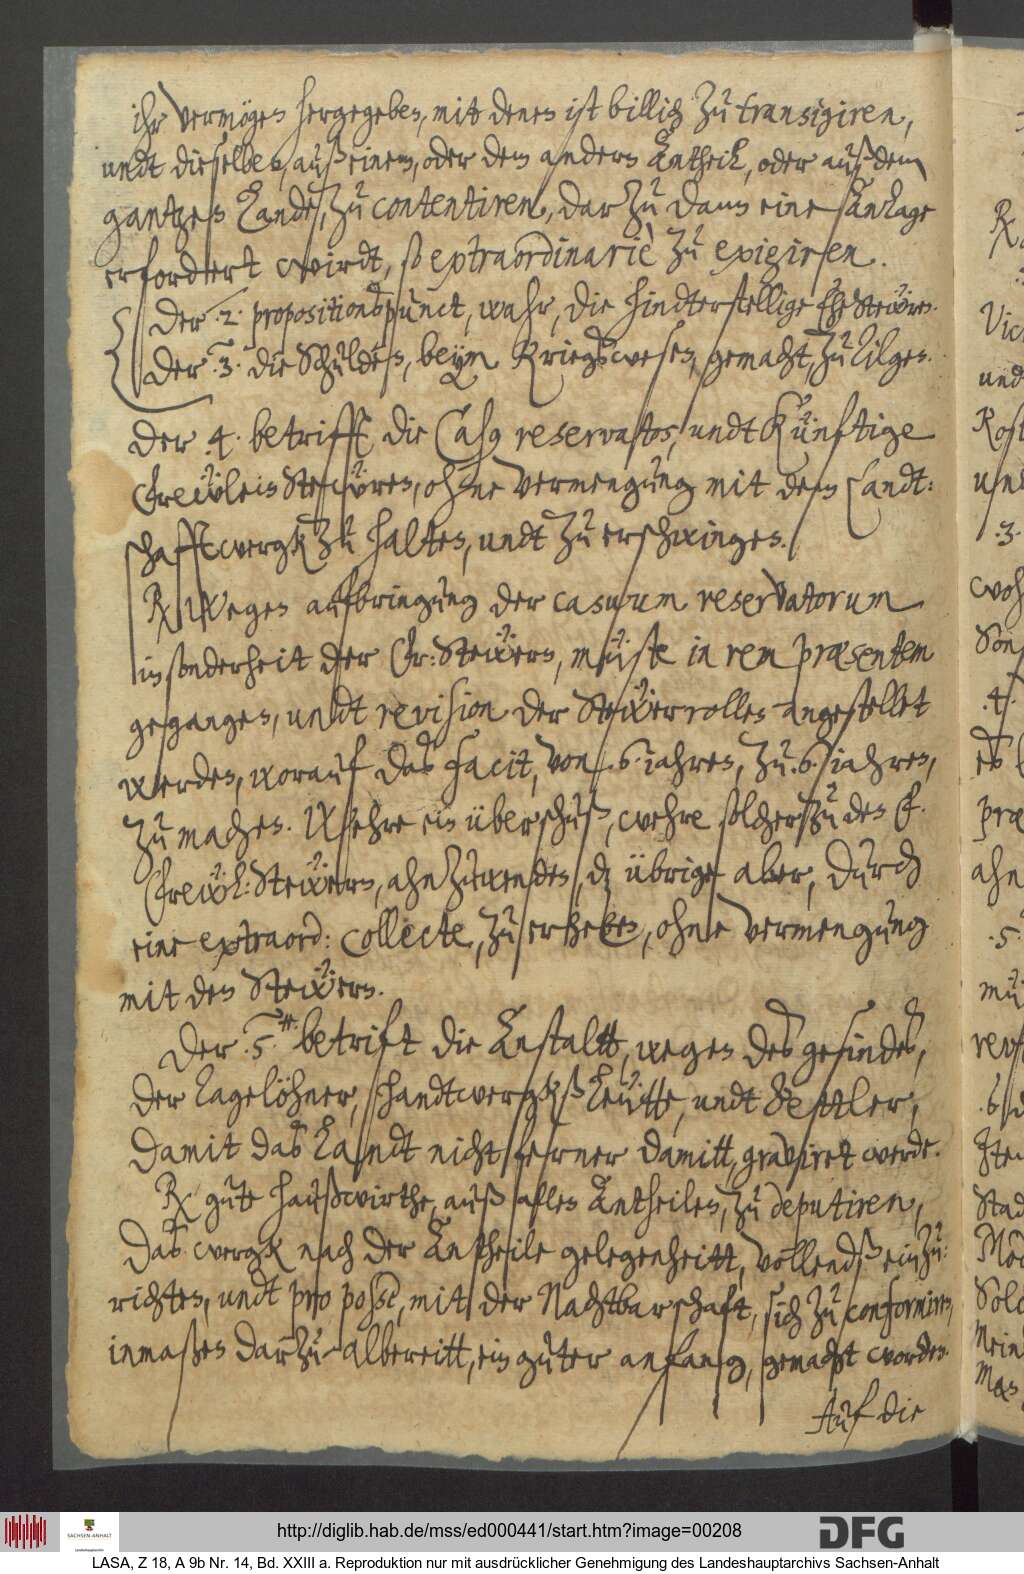 ihr vermögen hergegeben, mit denen ist billich zu transigiren,
undt dieselben, auß einem, oder dem andern Antheil, oder auß dem
gantzen Lande, zu contentiren, dar zu dann eine Anlage
erfordert wirdt, extraordinariè zu exigiren.
Der .2. propositions punct, wahr, die hindterstellige Steüren.
Der .3. die Schulden, beym Kriegswesen, gemacht, zu tilgen.
Der .4. betrifft, die Casq reservatos, undt Künftige
Freülein Steüren, ohne vermengung mit dem Landt:
schafftwergk zu halten, undt zu erschwingen.
Rx Wegen aufbringung der casuum reservatorum
insonderheit der Fr: Steüern, müste in rem præsentem
gegangen, undt revision der Steüerrollen angestellet
werden, worauf das facit, von .6. jahren, zu .6. jahren,
zu machen. Wehre ein überschuß, wehre solcher zu den F.
Freüwl: Steüern, ahnzuwenden, dz übrige aber, durch
eine extraord: Collecte, zu erheben, ohne vermengung
mit den Steüern.
Der .5. betrift die Anstaltt, wegen des gesindes,
der Tagelöhner, handtwergkßleütte, undt Bettler,
damit das Landt nicht ferner damitt, graviret werde.
Rx gute haußwirthe, auß allen Antheilen, zu deputiren,
das wergk nach der Antheile gelegenheitt, vollendß einzu:
richten, undt pro posse, mit der Nachtbarschaft, sich zu conformiren,
inmaßen darzu albereitt, ein guter anfang, gemacht worden.
Auf die
http://diglib.hab.de/mss/ed000441/start.htm?image=00208
SACHSEN-ANHALT
DFG
LASA, Z 18, A 9b Nr. 14, Bd. XXIII a. Reproduktion nur mit ausdrücklicher Genehmigung des Landeshauptarchivs Sachsen-Anhalt